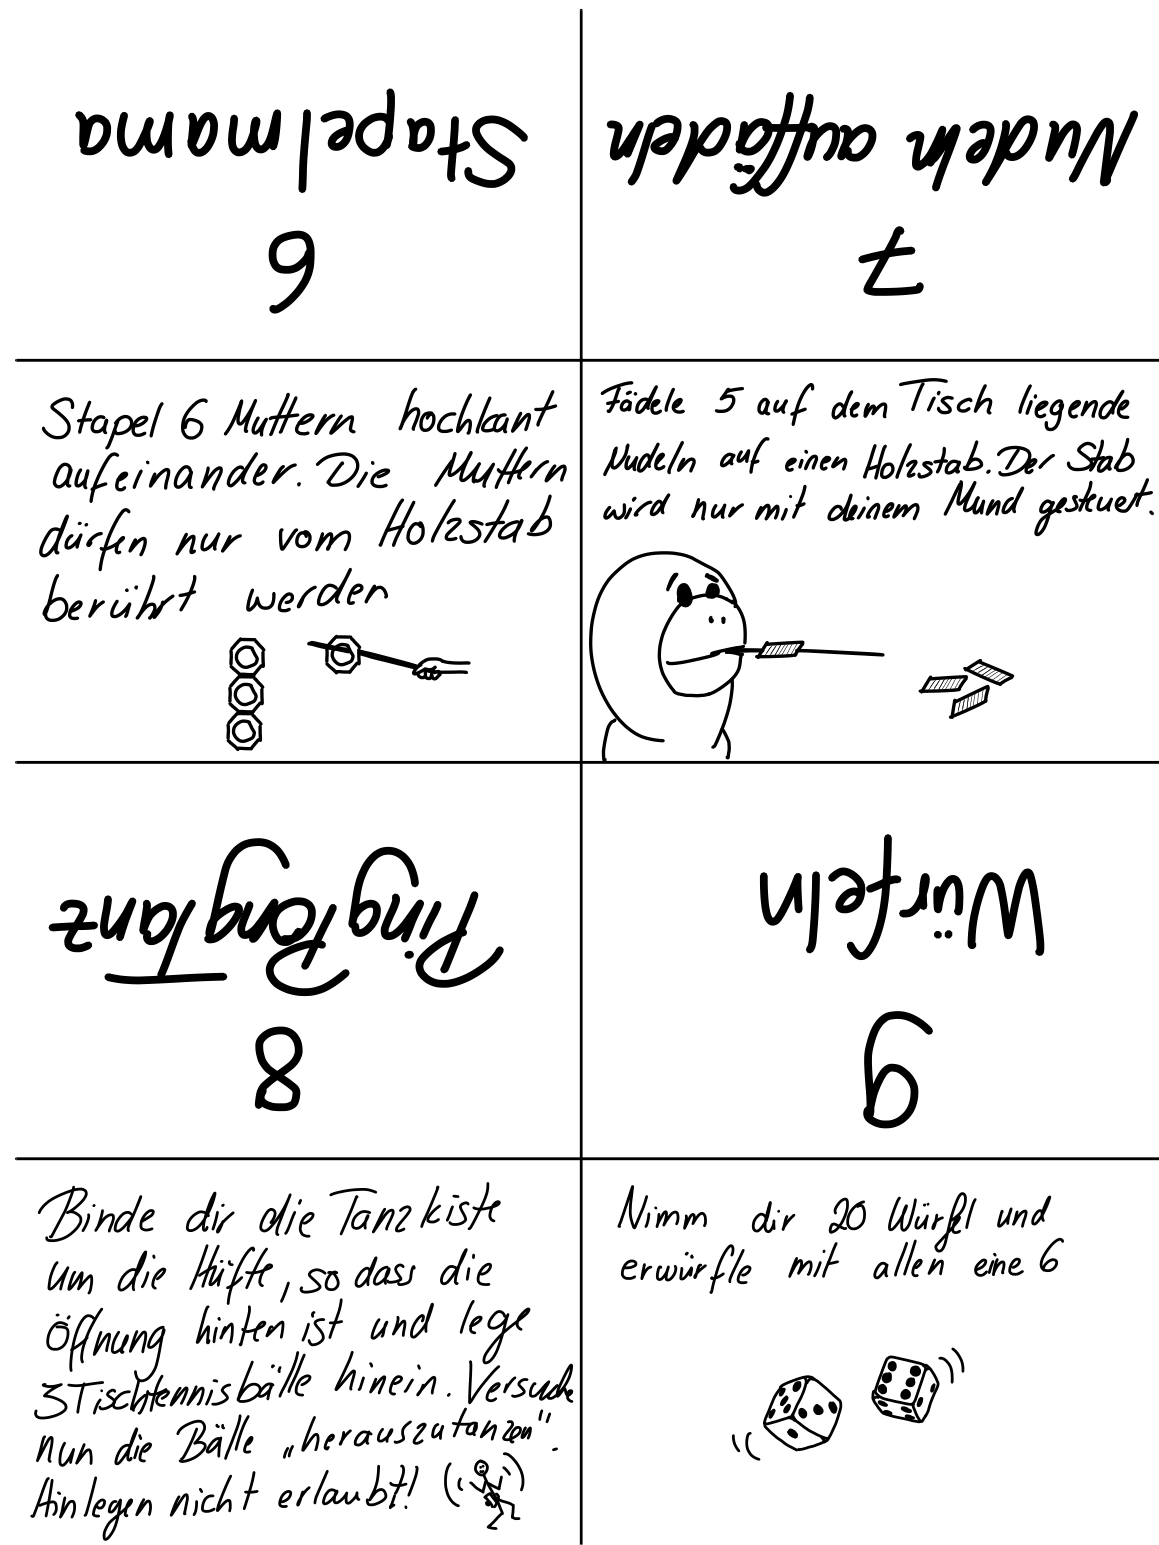 Stapelmama
6
Stapel 6 Muttern hochkant
aufeinander. Die Muttern
dürfen nur vom Holzstab
berührt werden
Nudeln auffädeln
7
Fädele 5 auf dem Tisch liegende
Nudeln auf einen Holzstab. Der Stab
wird nur mit deinem Mund gesteuert.
PingPongTanz
8
Binde dir die Tanzkiste
um die Hüfte, so dass die
Öffnung hinten ist und lege
3 Tischtennisbälle hinein. Versuche
nun die Bälle „herauszutanzen".
Hinlegen nicht erlaubt!
Würfeln
9
Nimm dir 20 Würfel und
erwürfle mit allen eine 6